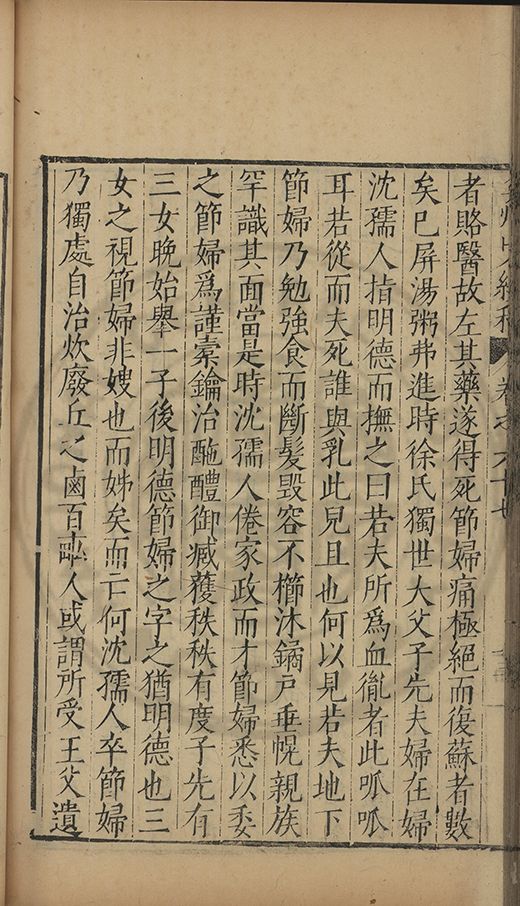 弇州山人續稿 卷之六十七
者賂醫故左其藥遂得死節婦痛極絕而復蘇者數
矣已屏湯粥弗進時徐氏獨世大父子先夫婦在婦
沈孺人指明德而撫之曰若夫所爲血胤者此呱呱
耳若從而夫死誰與乳此兒且也何以見若夫地下
節婦乃勉強食而斷髮毀容不櫛沐鐍戶垂幌親族
罕識其面當是時沈孺人倦家政而才節婦悉以委
之節婦爲謹橐鑰治酏醴御臧蒦秩秩有度子先有
三女晚始舉一子後明德節婦之字之猶明德也三
女之視節婦非嫂也而姊矣而亡何沈孺人卒節婦
乃獨處自治炊廢丘之鹵百畝人或謂所受王父遺